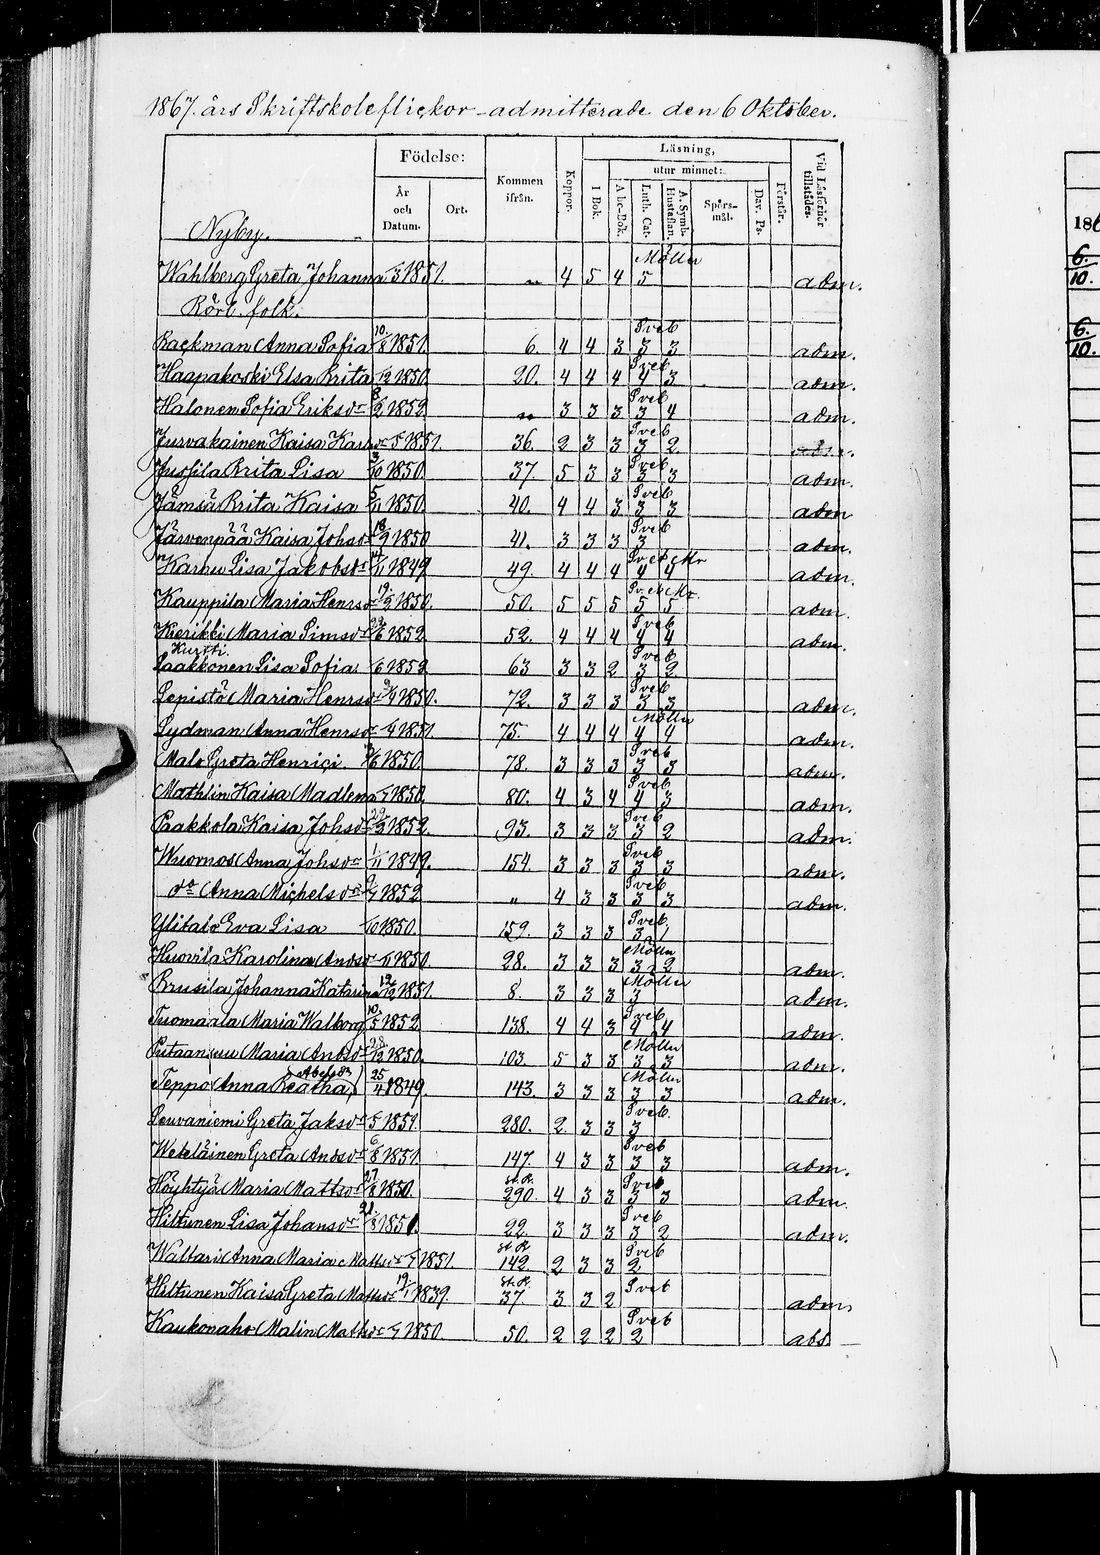 1867. års Skriftskoleflickor admitterade den 6 Oktober.
Födelse: Kommen ifrån. Koppor. Läsning, utur minnet: Vid Läsförhör tillstädes.
År och Datum. Ort. I Bok. A b c-Bok. Luth. Cat. A. Symb. Hustaflan. Spörsmål. Dav. Ps. Förstår.
Nyby.
Möller
Wahlberg Greta Johanna 1851. " 4 5 4 5 adm.
Rörl. folk.
Sveb
Rackman Anna Sofia 10/8 1851. 6. 4 4 3 3 3 adm.
Sveb
Haapakoski Elsa Brita /12 1850. 20. 4 4 4 4 3 adm.
Sveb
Halonen Sofia Eriksdr 1852. " 3 3 3 3 4 adm.
Sveb
Jurvakainen Kaisa 1851. 36. 2 3 3 3 2 adm.
Sveb
Jussila Brita Lisa 3/10 1850. 37. 5 3 3 3 3 adm.
Sveb
Jämsä Brita Kaisa 5/11 1850. 40. 4 4 3 3 3 adm
Sveb
Järvenpää Kaisa Johsdr 18/9 1850 41. 3 3 3 3 adm.
Sveb Mr
Karhu Lisa Jakobsdr 1849 49. 4 4 4 4 4 adm.
Sveb Mr.
Kauppila Maria Henrsdr 1850. 50. 5 5 5 5 5 adm.
Sveb
Kierikki Maria Simsdr 1852 52. 4 4 4 4 4 adm.
Kurtti. Sveb
Laakkonen Lisa Sofia /6 1852 63 3 3 2 3 2
Sveb
Lepistö Maria Henrsdr 1850. 72. 3 3 3 3 3 adm.
Möller
Lydman Anna Henrsdr 1851 75. 4 4 4 4 4 adm.
Sveb
Malo Greta Henrici 1850. 78. 3 3 3 3 3 adm.
Sveb
Mathlin Kaisa Madlena 1850. 80. 4 3 4 4 3 adm.
Sveb
Paakkola Kaisa Johsdr 1852. 93. 3 3 3 3 2 adm.
Sveb
Wuornos Anna Johsdr 1/11 1849. 154. 3 3 3 3 3 adm.
Sveb
do Anna Michelsdr 1852 " 4 3 3 3 3 adm.
Sveb
Ylitalo Eva Lisa /10 1850. 159. 3 3 3 3 1
Möller
Huovila Karolina Andsdr 1850 28. 3 3 3 3 2 adm.
Möller
Brusila Johanna Katarina 1851. 8. 3 3 3 3 adm.
Sveb
Tuomaala Maria Walborg 10/5 1852 138. 4 4 3 4 4 adm.
Möller
Putaansuu Maria Andsdr 1850. 103. 5 3 3 3 3
Abelsdr Möller
Teppo Anna Reatha 25/11 1849. 143. 3 3 3 3 3 adm.
Sveb.
Leuvaniemi Greta Jaksdr /5 1851. 280. 2. 3 3 3
Sveb
Weteläinen Greta Andsdr 6/8 1851. 147. 4 3 3 3 3 adm.
st. R. Sveb
Höyhtyä Maria Mattsdr 27/8 1850. 290. 4 3 3 3 3 adm.
Sveb
Hiltunen Lisa Johansdr 21/8 1851. 22. 3 3 3 3 2 adm.
st. R Sveb
Waltari Anna Maria Mattsdr 1851. 142 2 3 3 2
st. R. Sveb
Hiltunen Kaisa Greta Mattsdr 19/1 1839. 37. 3 3 2 adm
Sveb
Kaukonaho Malin Mattsdr 1850 50. 2 2 2 2 abs.
186
6.
10.
6.
10.